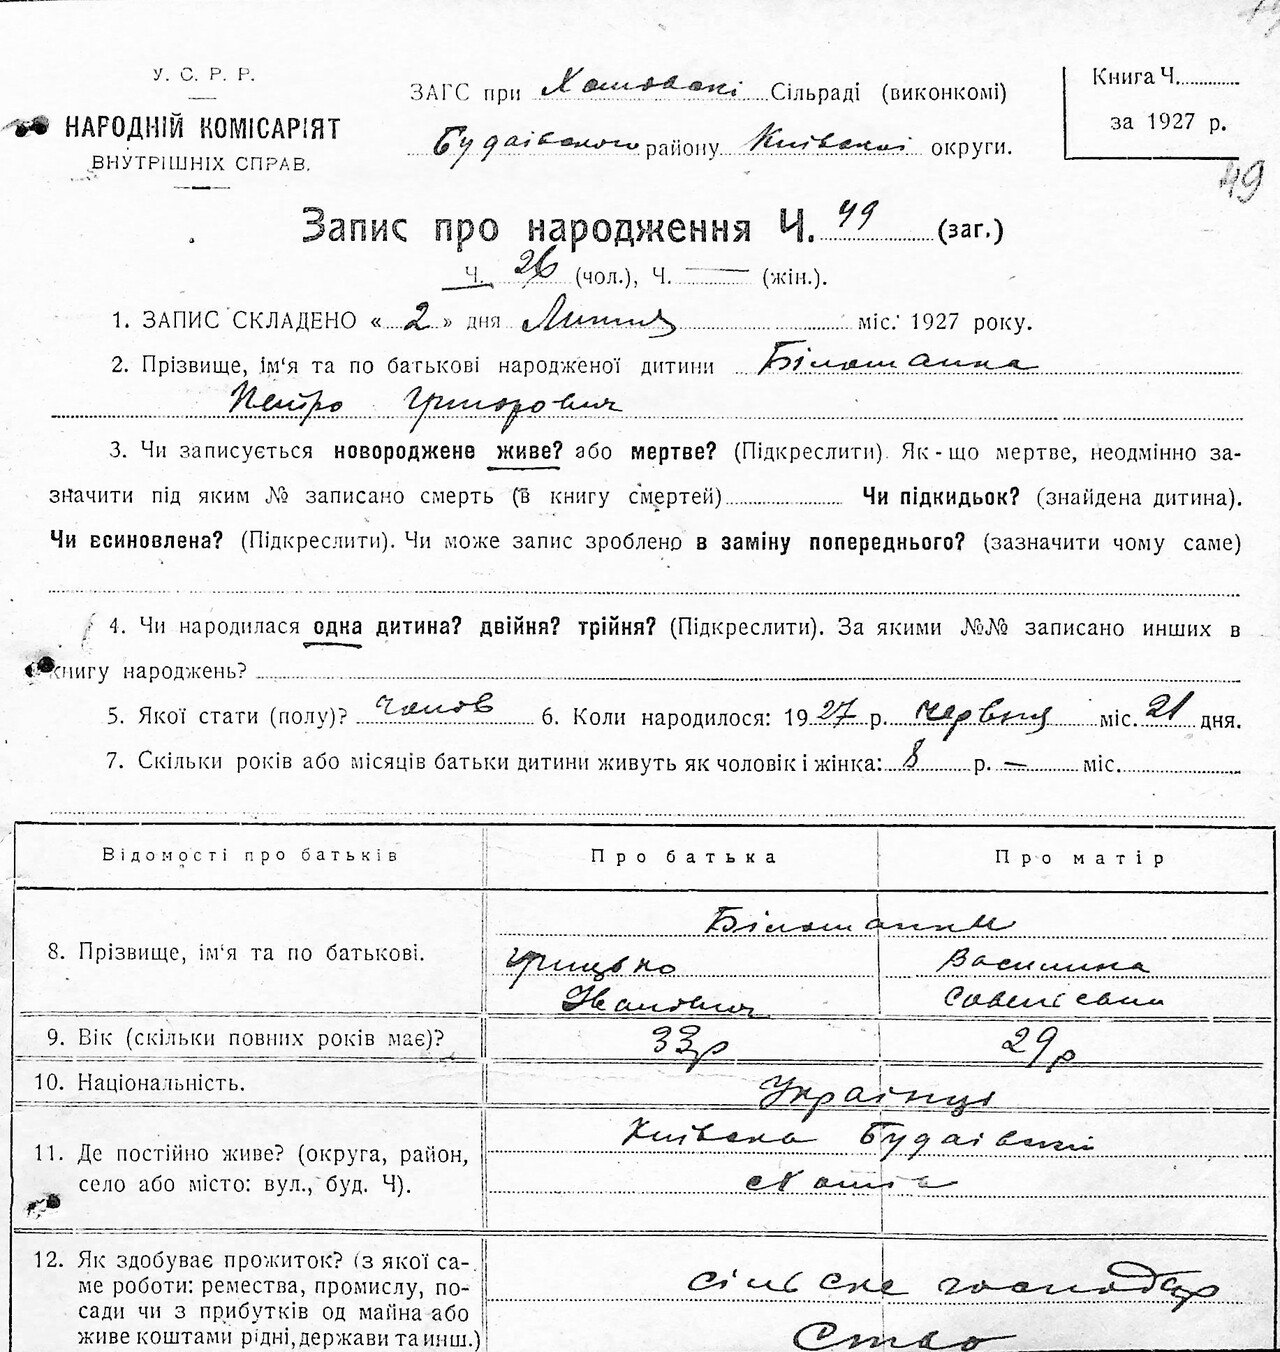 У. С. Р. Р.
НАРОДНІЙ КОМІСАРІЯТ
ВНУТРІШНІХ СПРАВ.
ЗАГС при Хотовскі Сільраді (виконкомі)
Будаівского району Київскоі округи.
Книга Ч.
за 1927 р.
49
Запис про народження Ч. 49 (заг.)
Ч. 26 (чол.), Ч. — (жін.).
1. ЗАПИС СКЛАДЕНО « 2 » дня Липня міс. 1927 року.
2. Прізвище, ім'я та по батькові народженої дитини Білошапка
Петро Григорович
3. Чи записується новороджене живе? або мертве? (Підкреслити). Як-що мертве, неодмінно за-
значити під яким № записано смерть (в книгу смертей) Чи підкидьок? (знайдена дитина).
Чи всиновлена? (Підкреслити). Чи може запис зроблено в заміну попереднього? (зазначити чому саме)
4. Чи народилася одна дитина? двійня? трійня? (Підкреслити). За якими №№ записано инших в
книгу народжень?
5. Якої стати (полу)? чолов 6. Коли народилося: 1927 р. червня міс. 21 дня.
7. Скільки років або місяців батьки дитини живуть як чоловік і жінка: 8 р. — міс.
Відомості про батьків Про батька Про матір
Білошапки
8. Прізвище, ім'я та по батькові. Грицько Василина
Іванович Савелієвна
9. Вік (скільки повних років має)? 33р 29р
10. Національність. Украінці
Київска Будаівскій
11. Де постійно живе? (округа, район,
село або місто: вул., буд. Ч). с Хотів
12. Як здобуває прожиток? (з якої са-
ме роботи: ремества, промислу, по- сільске господар
сади чи з прибутків од майна або
живе коштами рідні, держави та инш.) ство